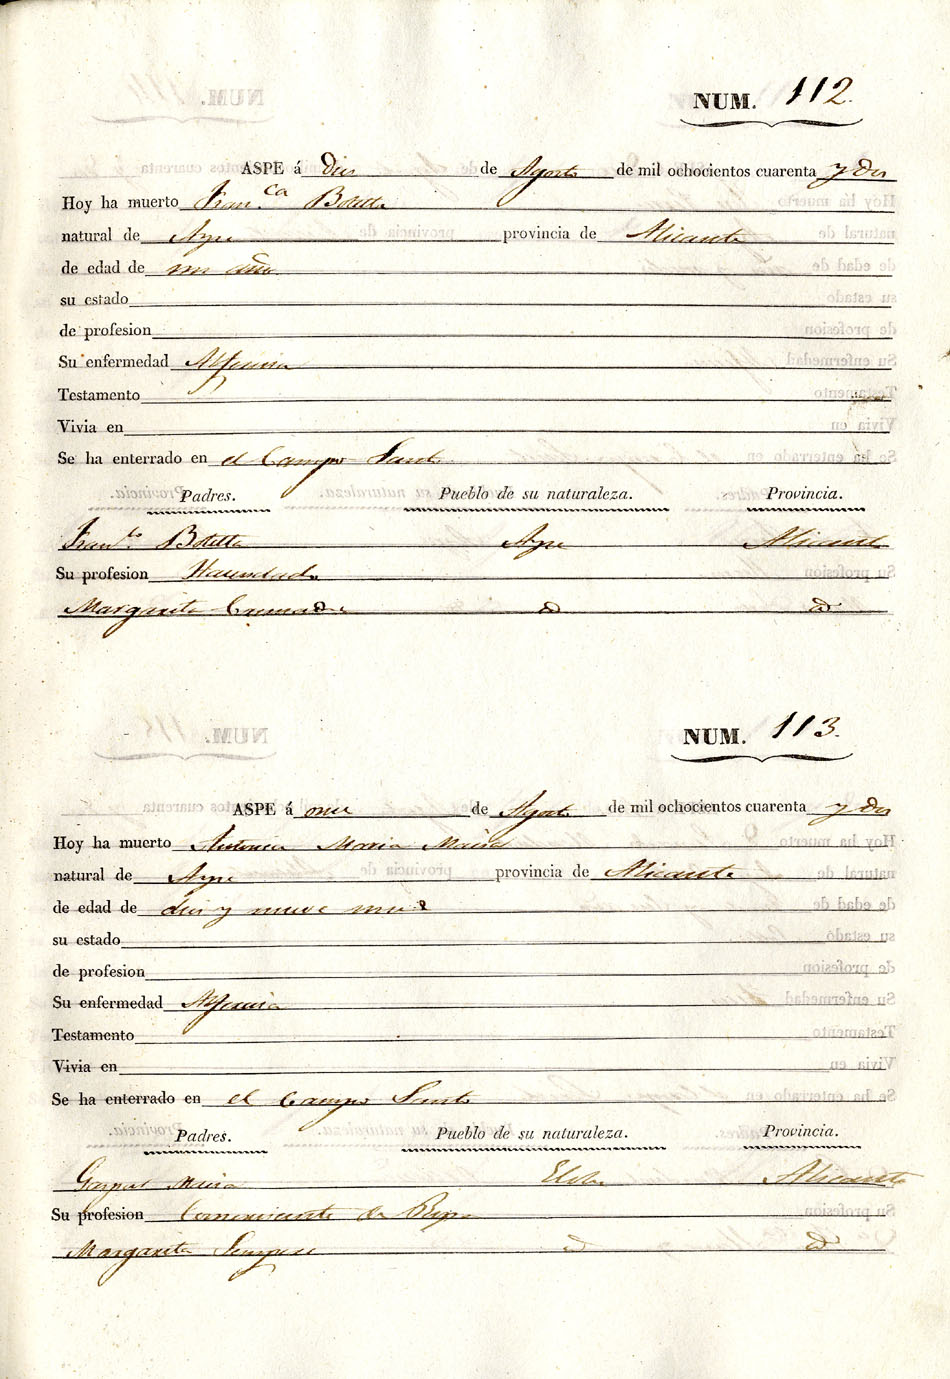 NUM. 112.
ASPE á Diez de Agosto de mil ochocientos cuarenta y dos
Hoy ha muerto Fran.ca Botella
natural de Aspe provincia de Alicante
de edad de un año
su estado
de profesion
Su enfermedad Alferecia
Testamento
Vivia en
Se ha enterrado en el Campo Santo
Padres. Pueblo de su naturaleza. Provincia.
Fran.co Botella Aspe Alicante
Su profesion Hacendado
Margarita Cremades d d
NUM. 113.
ASPE á once de Agosto de mil ochocientos cuarenta y dos
Hoy ha muerto Antonia Maria Maciá
natural de Aspe provincia de Alicante
de edad de diez y nueve meses
su estado
de profesion
Su enfermedad Alferecia
Testamento
Vivia en
Se ha enterrado en el Campo Santo
Padres. Pueblo de su naturaleza. Provincia.
Gaspar Maciá Elda Alicante
Su profesion Comerciante de
Margarita Sempere d d